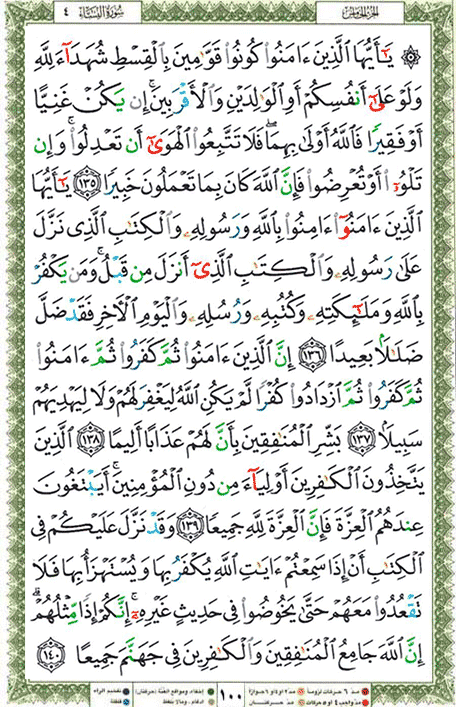 الجزء الخامس
سورة النساء
٤
۞ يَـٰٓأَيُّهَا ٱلَّذِينَ ءَامَنُوا۟ كُونُوا۟ قَوَّٰمِينَ بِٱلْقِسْطِ شُهَدَآءَ لِلَّهِ
وَلَوْ عَلَىٰٓ أَنفُسِكُمْ أَوِ ٱلْوَٰلِدَيْنِ وَٱلْأَقْرَبِينَ ۚ إِن يَكُنْ غَنِيًّا
أَوْ فَقِيرًا فَٱللَّهُ أَوْلَىٰ بِهِمَا ۖ فَلَا تَتَّبِعُوا۟ ٱلْهَوَىٰٓ أَن تَعْدِلُوا۟ ۚ وَإِن
تَلْوُۥٓا۟ أَوْ تُعْرِضُوا۟ فَإِنَّ ٱللَّهَ كَانَ بِمَا تَعْمَلُونَ خَبِيرًا ١٣٥ يَـٰٓأَيُّهَا
ٱلَّذِينَ ءَامَنُوٓا۟ ءَامِنُوا۟ بِٱللَّهِ وَرَسُولِهِۦ وَٱلْكِتَـٰبِ ٱلَّذِى نَزَّلَ
عَلَىٰ رَسُولِهِۦ وَٱلْكِتَـٰبِ ٱلَّذِىٓ أَنزَلَ مِن قَبْلُ ۚ وَمَن يَكْفُرْ
بِٱللَّهِ وَمَلَـٰٓئِكَتِهِۦ وَكُتُبِهِۦ وَرُسُلِهِۦ وَٱلْيَوْمِ ٱلْـَٔاخِرِ فَقَدْ ضَلَّ
ضَلَـٰلًۢا بَعِيدًا ١٣٦ إِنَّ ٱلَّذِينَ ءَامَنُوا۟ ثُمَّ كَفَرُوا۟ ثُمَّ ءَامَنُوا۟
ثُمَّ كَفَرُوا۟ ثُمَّ ٱزْدَادُوا۟ كُفْرًا لَّمْ يَكُنِ ٱللَّهُ لِيَغْفِرَ لَهُمْ وَلَا لِيَهْدِيَهُمْ
سَبِيلًۢا ١٣٧ بَشِّرِ ٱلْمُنَـٰفِقِينَ بِأَنَّ لَهُمْ عَذَابًا أَلِيمًا ١٣٨ ٱلَّذِينَ
يَتَّخِذُونَ ٱلْكَـٰفِرِينَ أَوْلِيَآءَ مِن دُونِ ٱلْمُؤْمِنِينَ ۚ أَيَبْتَغُونَ
عِندَهُمُ ٱلْعِزَّةَ فَإِنَّ ٱلْعِزَّةَ لِلَّهِ جَمِيعًا ١٣٩ وَقَدْ نَزَّلَ عَلَيْكُمْ فِى
ٱلْكِتَـٰبِ أَنْ إِذَا سَمِعْتُمْ ءَايَـٰتِ ٱللَّهِ يُكْفَرُ بِهَا وَيُسْتَهْزَأُ بِهَا فَلَا
تَقْعُدُوا۟ مَعَهُمْ حَتَّىٰ يَخُوضُوا۟ فِى حَدِيثٍ غَيْرِهِۦٓ ۚ إِنَّكُمْ إِذًا مِّثْلُهُمْ ۗ
إِنَّ ٱللَّهَ جَامِعُ ٱلْمُنَـٰفِقِينَ وَٱلْكَـٰفِرِينَ فِى جَهَنَّمَ جَمِيعًا ١٤٠
مد ٦ حركات لزوماً
مد ٢ أو ٤ أو ٦ جوازاً
مد واجب ٤ أو ٥ حركات
مد حركتان
١٠٠
إخفاء، ومواقع الغنة (حركتان)
ادغام، وما لا يلفظ
تفخيم الراء
قلقلة